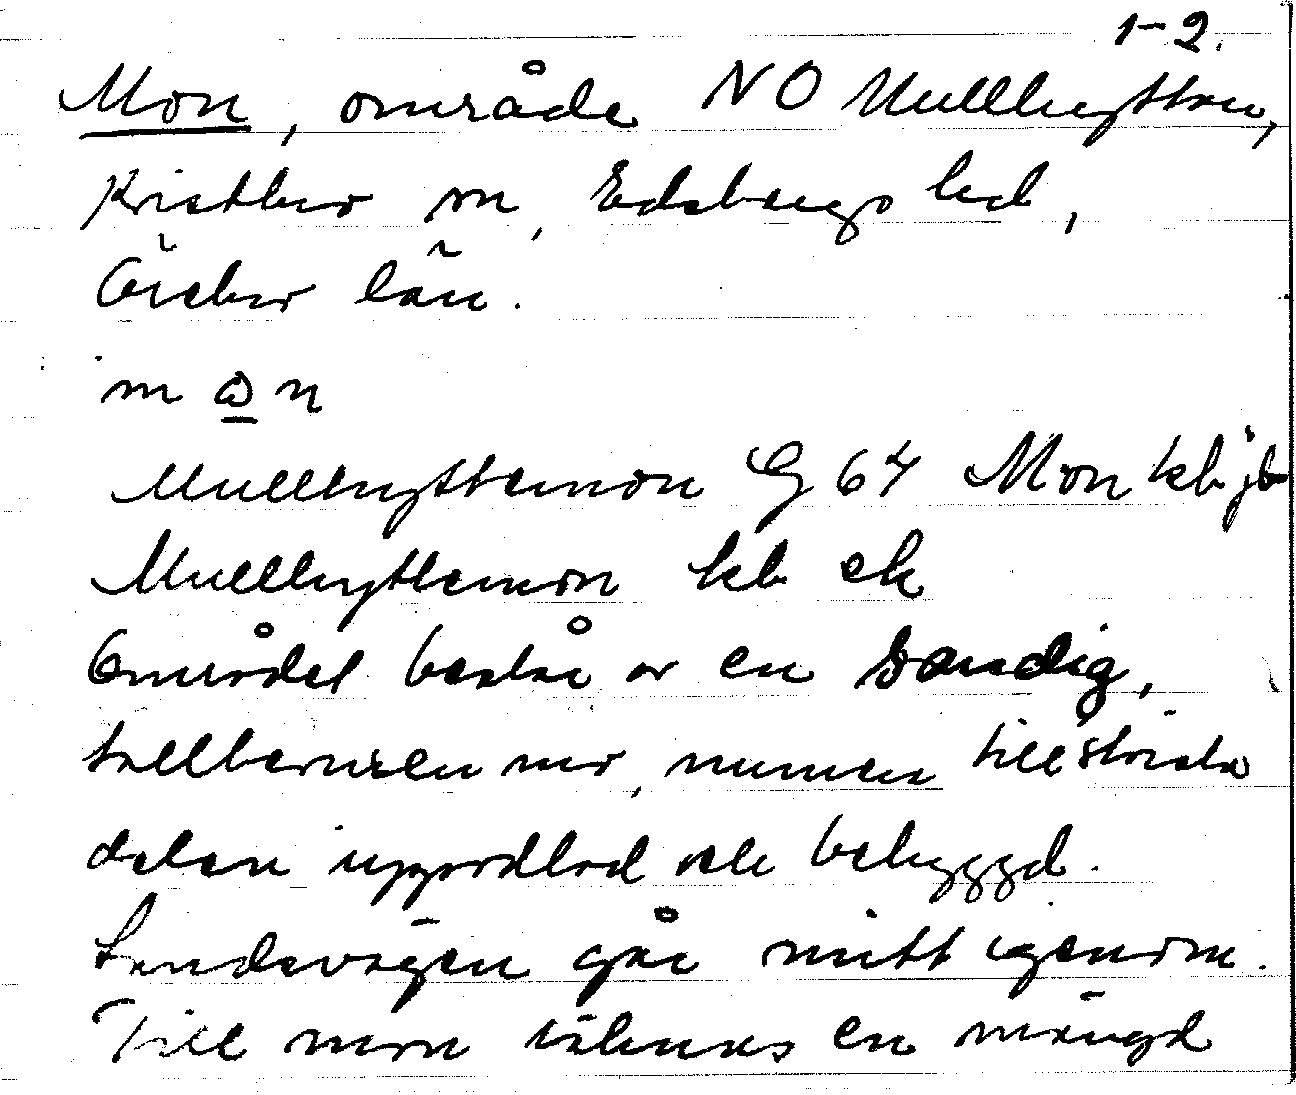 1-2.
Mon, område NO Mullhyttan,
Kvistbro sn, Edsbergs hd,
Örebro län.
mɷn
Mullhyttemon G 64 Mon kb jb
Mullhyttemon kb ek
Området består av en sandig,
tallbevuxen mo, numera till största
delen uppodlad och bebyggd.
Landsvägen går mitt igenom.
Till mon räknas en mängd